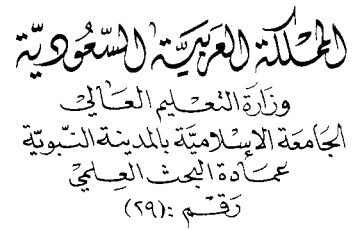 المملكة العربية السعودية
وزارة التعليم العالي
الجامعة الإسلامية بالمدينة النبوية
عمادة البحث العلمي
رقم : (٢٩)